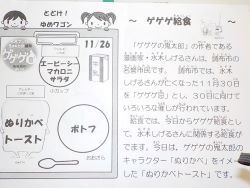 とどけ！
ゆめワゴン
11/26
エービーシー
マカロニ
サラダ
小カップ
ぬりかべ
トースト
ポトフ
おおざら
～ ゲゲゲ給食 ～
「ゲゲゲの鬼太郎」の作者である
漫画家・水木しげるさんは、調布市の
名誉市民です。 調布市では、水木
しげるさんが亡くなった１１月３０日
を「ゲゲゲ忌」とし、３０日に向けて
いろいろな催しが行われています。
給食では、今日からゲゲゲ給食とし
て、水木しげるさんに関係する給食が
でます。今日は、ゲゲゲの鬼太郎の
キャラクター「ぬりかべ」をイメー
した「ぬりかべトースト」です。